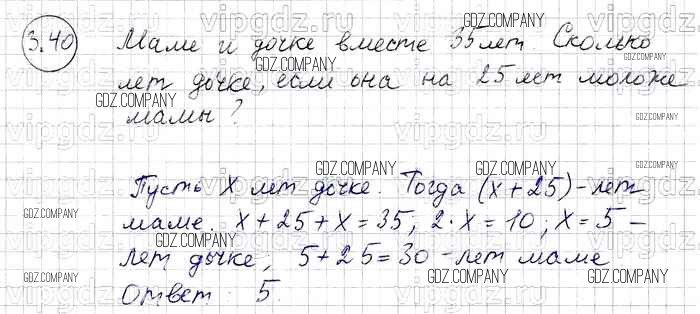 3.40 Маме и дочке вместе 35 лет. Сколько
лет дочке, если она на 25 лет моложе
мамы?
Пусть x лет дочке. Тогда (x + 25) - лет
маме. x + 25 + x = 35; 2 · x = 10; x = 5 -
лет дочке; 5 + 25 = 30 - лет маме
Ответ: 5.